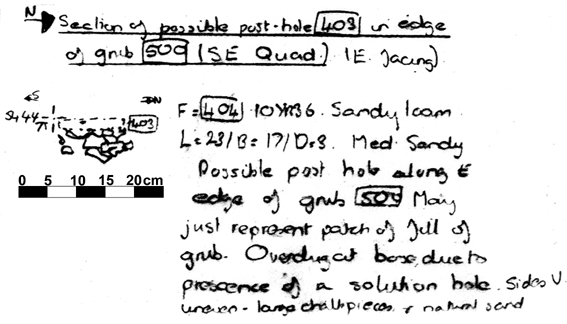 N
Section of possible post-hole 403 in edge
of grub 509 (SE Quad.) (E. facing)
S N
403
F = 404 10YR36. Sandy loam
L=23/B=17/D=8. Med Sandy
Possible post hole along E
edge of grub 509 May
just represent patch of fill of
grub. Overdug at base, due to
prescence of a solution hole. Sides V.
uneven - large chalk pieces + natural sand
0 5 10 15 20cm